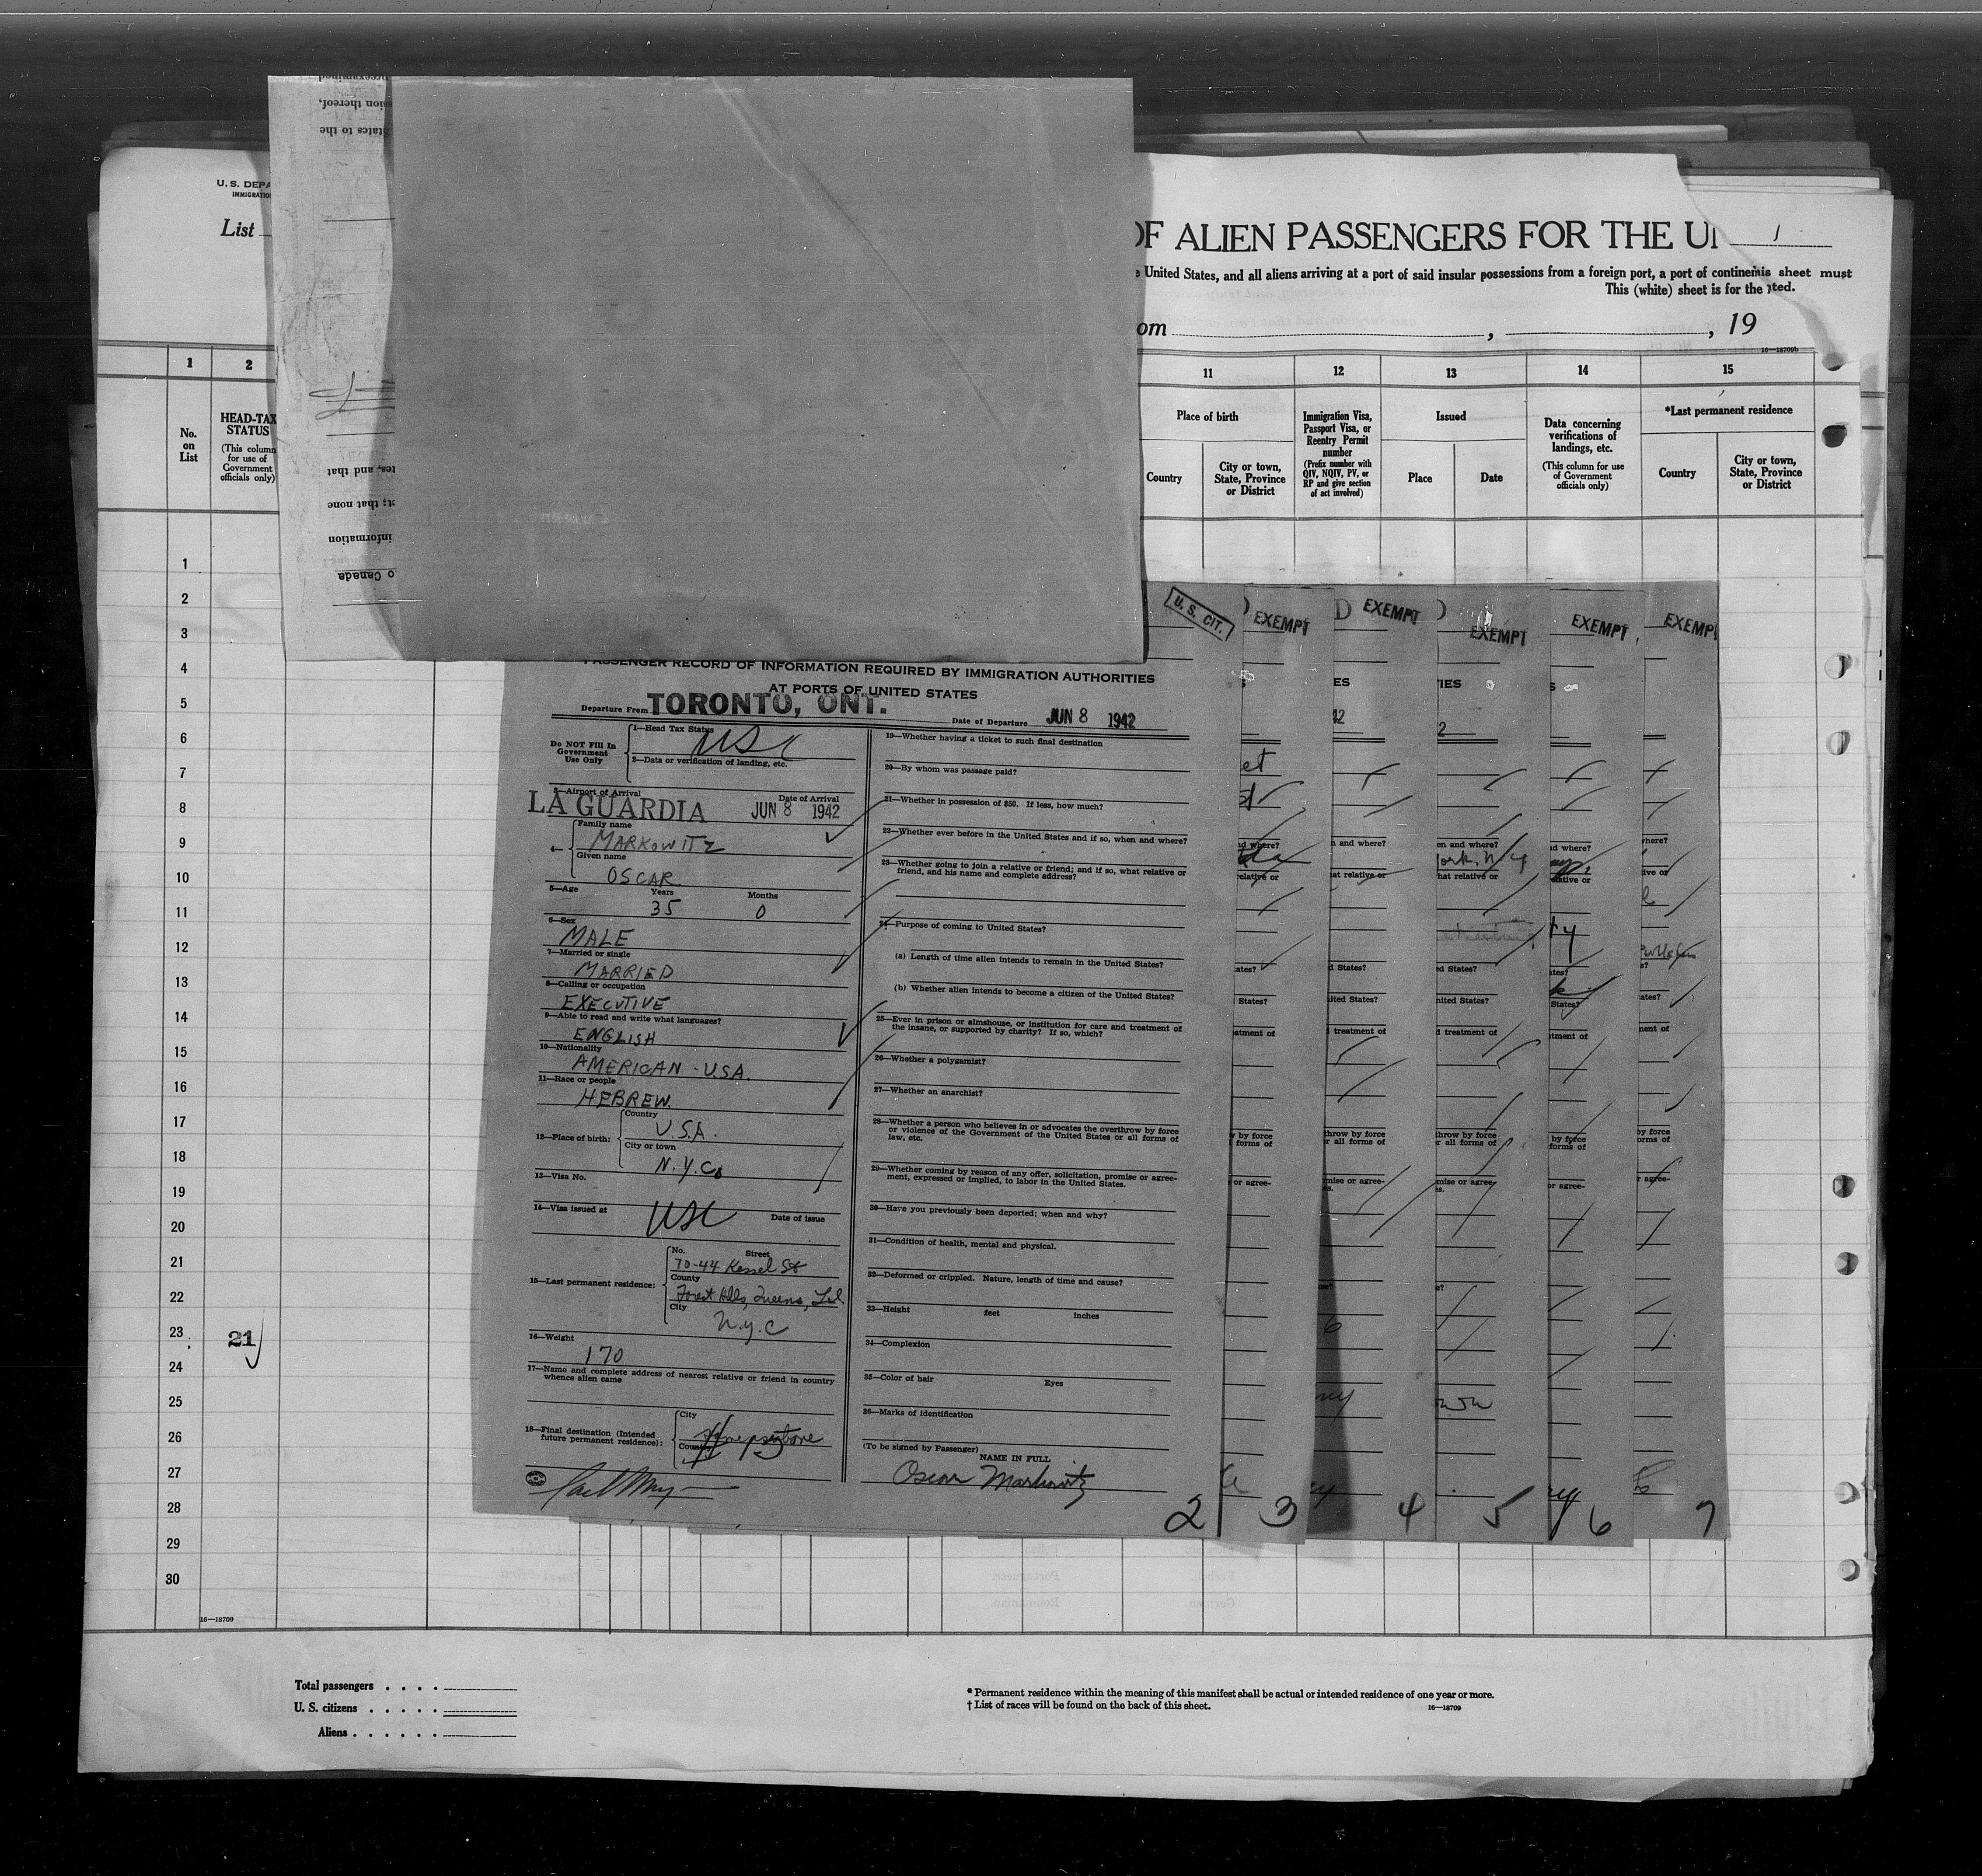 U. S. DEPA
IMMIGRATIO
List
preexamined
sion thereof,
States to the
tes, and that
st; that none
information
o Canada
OF ALIEN PASSENGERS FOR THE UN
1
e United States, and all aliens arriving at a port of said insular possessions from a foreign port, a port of contine
is sheet must
This (white) sheet is for the
ted.
om , , 19
16—18709b
1 2 11 12 13 14 15
No. on List
HEAD-TAX STATUS
(This column for use of Government officials only)
Place of birth
Country
City or town, State, Province or District
Immigration Visa, Passport Visa, or Reentry Permit number
(Prefix number with QIV, NQIV, PV, or RP and give section of act involved)
Issued
Place
Date
Data concerning verifications of landings, etc.
(This column for use of Government officials only)
*Last permanent residence
Country
City or town, State, Province or District
1
2
3
4
5
6
7
8
9
10
11
12
13
14
15
16
17
18
19
20
21
22
23
21
24
25
26
27
28
29
30
16—18709
U. S. CIT.
EXEMPT
EXEMPT
EXEMPT
EXEMPT
EXEMPT
PASSENGER RECORD OF INFORMATION REQUIRED BY IMMIGRATION AUTHORITIES
AT PORTS OF UNITED STATES
Departure From TORONTO, ONT. Date of Departure JUN 8 1942
Do NOT Fill In
Government
Use Only
1—Head Tax Status USC
2—Data or verification of landing, etc.
3—Airport of Arrival Date of Arrival
LA GUARDIA JUN 8 1942
4—
Family name
MARKOWITZ
Given name
OSCAR
5—Age Years Months
35 0
6—Sex
MALE
7—Married or single
MARRIED
8—Calling or occupation
EXECUTIVE
9—Able to read and write what languages?
ENGLISH
10—Nationality
AMERICAN - U.S.A.
11—Race or people
HEBREW.
12—Place of birth:
Country
U.S.A.
City or town
N.Y.C.
13—Visa No.
14—Visa issued at USC Date of issue
15—Last permanent residence:
No. Street
70-44 Kessel St
County
Forest Hills, Queens, L.I.
City
N.Y.C
16—Weight
170
17—Name and complete address of nearest relative or friend in country
whence alien came
18—Final destination (Intended
future permanent residence):
City
Country
19—Whether having a ticket to such final destination
20—By whom was passage paid?
21—Whether in possession of $50. If less, how much?
22—Whether ever before in the United States and if so, when and where?
23—Whether going to join a relative or friend; and if so, what relative or
friend, and his name and complete address?
24—Purpose of coming to United States?
(a) Length of time alien intends to remain in the United States?
(b) Whether alien intends to become a citizen of the United States?
25—Ever in prison or almshouse, or institution for care and treatment of
the insane, or supported by charity? If so, which?
26—Whether a polygamist?
27—Whether an anarchist?
28—Whether a person who believes in or advocates the overthrow by force
or violence of the Government of the United States or all forms of
law, etc.
29—Whether coming by reason of any offer, solicitation, promise or agree-
ment, expressed or implied, to labor in the United States.
30—Have you previously been deported; when and why?
31—Condition of health, mental and physical.
32—Deformed or crippled. Nature, length of time and cause?
33—Height feet inches
34—Complexion
35—Color of hair Eyes
36—Marks of identification
(To be signed by Passenger)
NAME IN FULL
Oscar Markowitz
2 3 4 5 6 7
Total passengers . . . .
U. S. citizens . . . . .
Aliens . . . . . .
* Permanent residence within the meaning of this manifest shall be actual or intended residence of one year or more.
† List of races will be found on the back of this sheet.
16—18709